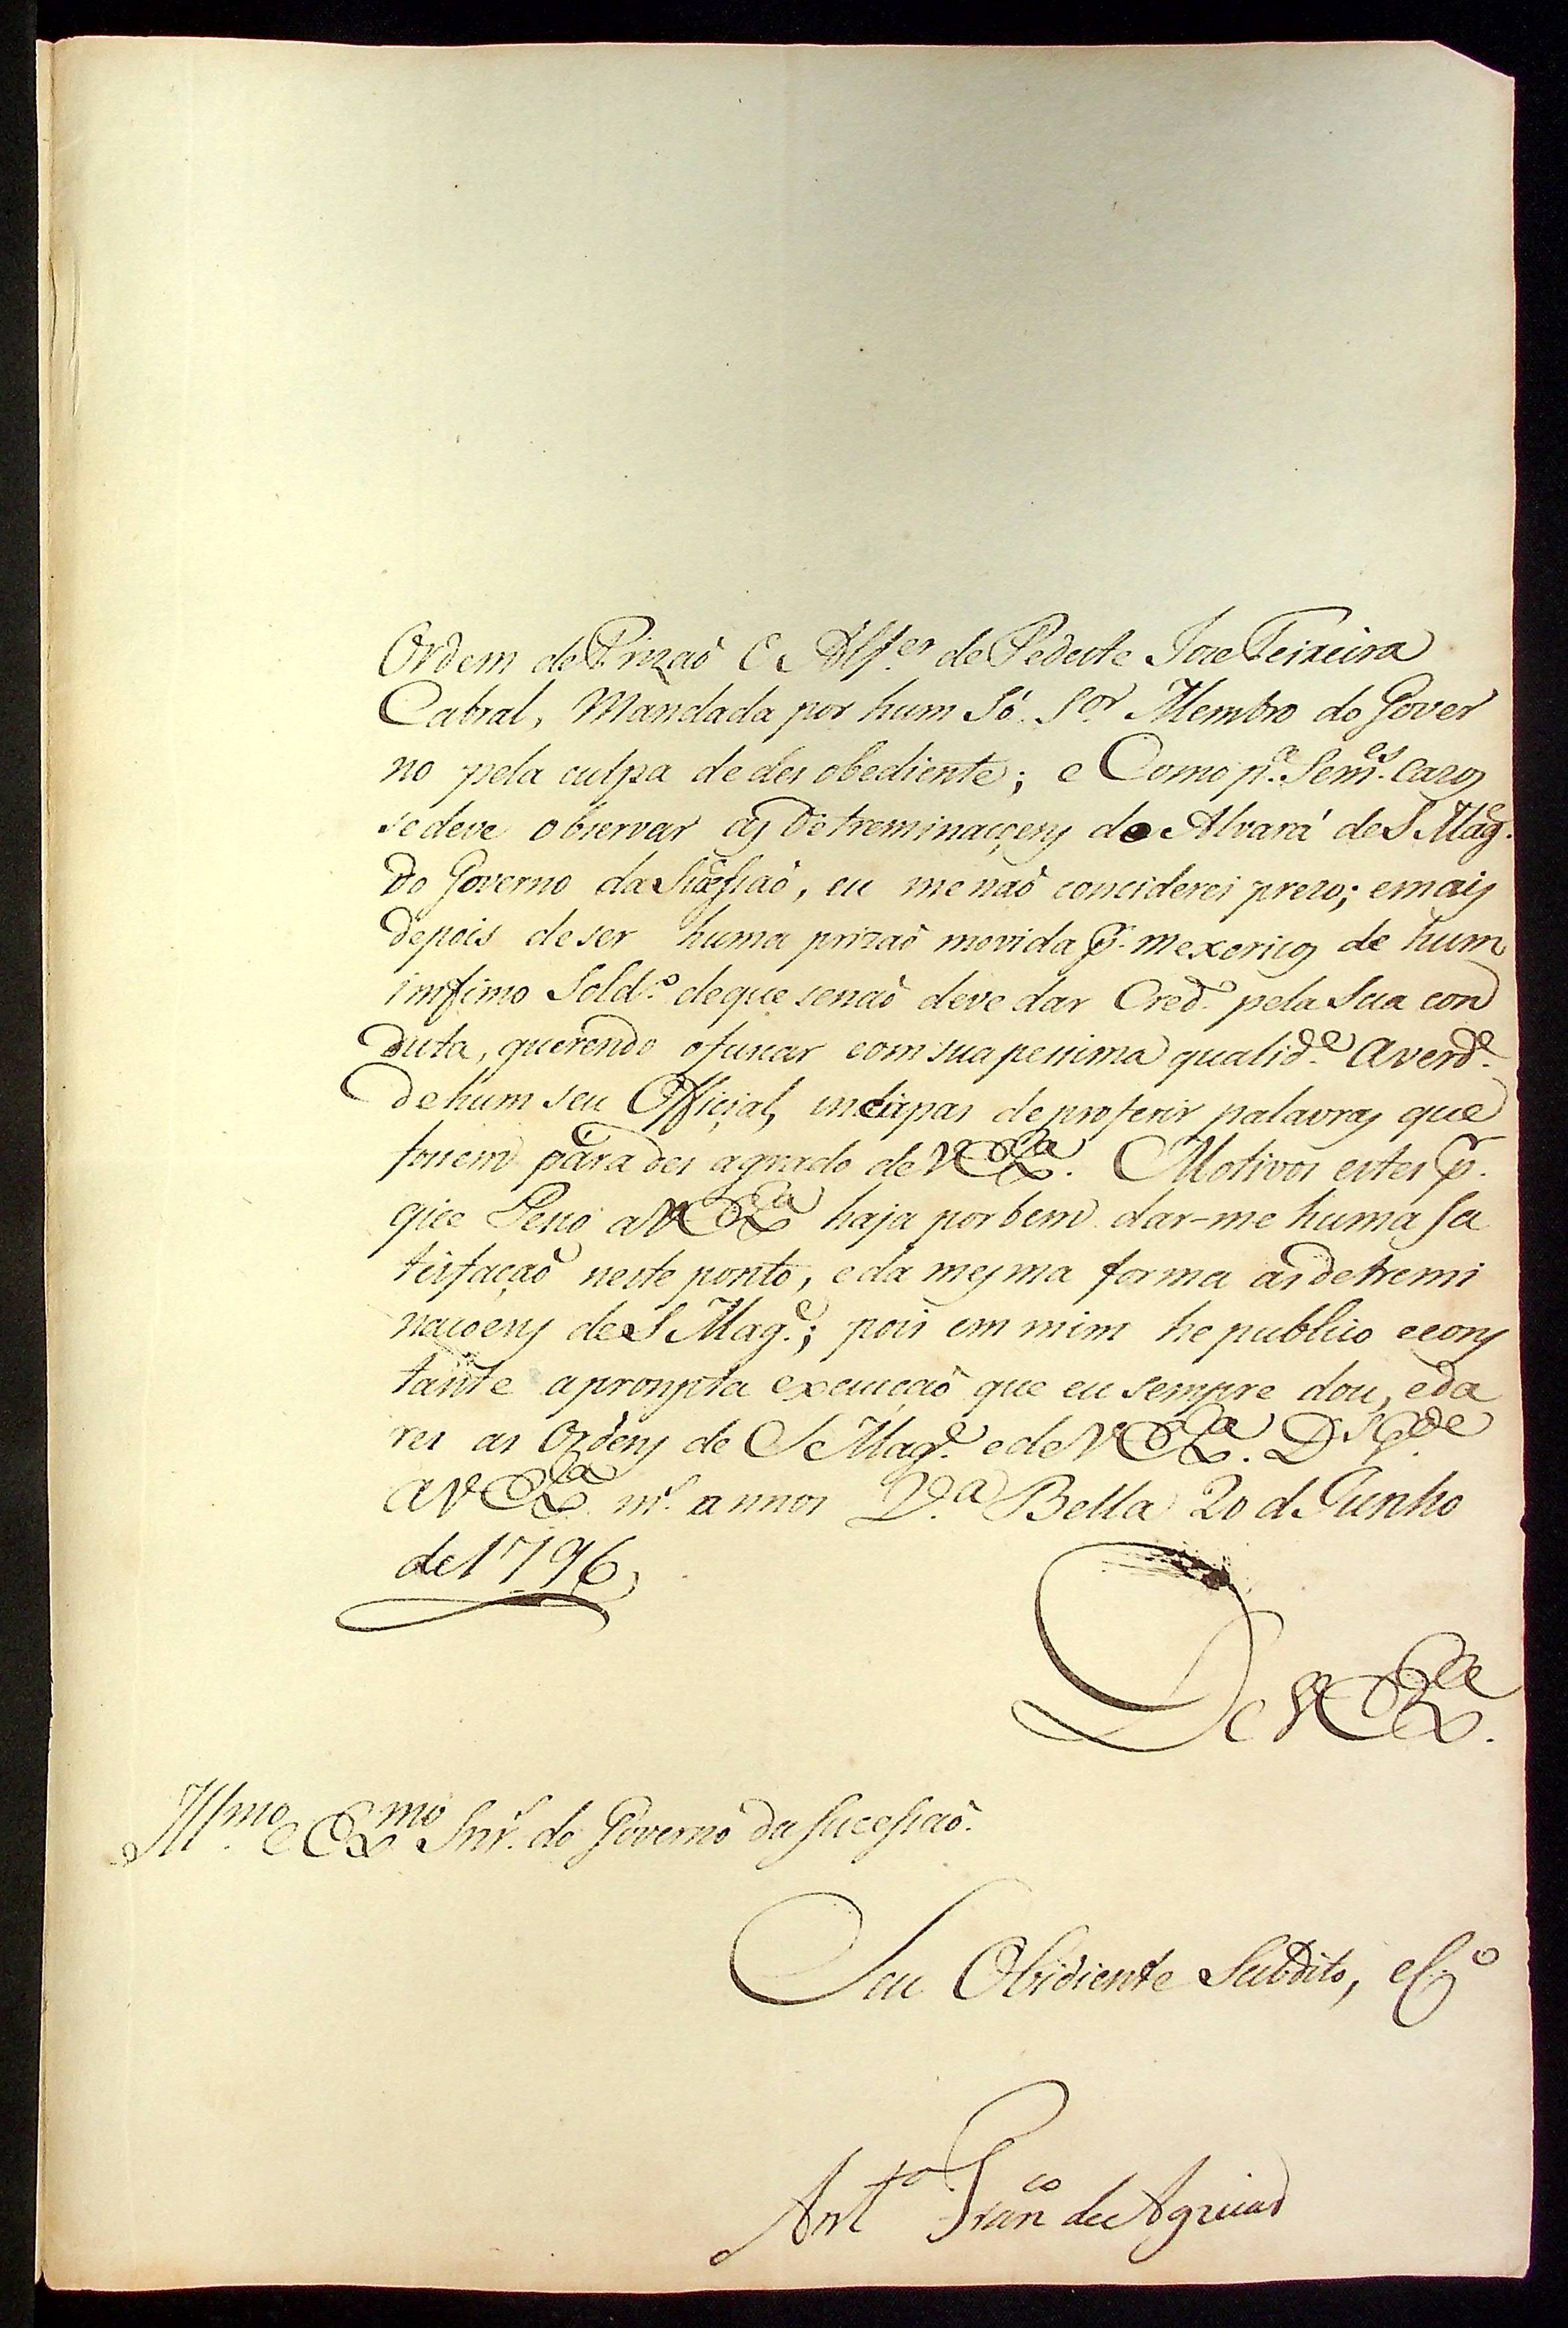 Ordem de Prizaõ O Alf.es de Pedeste Joze Teixeira
Cabral, Mandada por hum Só S.or Membro do Gover
no pela culpa de des obediente; e Como p.a Sem.es cazos
se deve observar as Detreminaçoens do Alvará de S Mag.e
do Governo da Suceſsaõ, eu me naõ conciderei prezo; e mais
depois de ser huma prizaõ movida p.r mexericos de hum
imfimo Sold.o de que senaõ deve dar Cred.o pela Sua con
duta, querendo ofuscar com sua pessima qualid.e a verd.e
de hum seu Official, incapas de proferir palavras que
fossem para des agrado de V Ex.a Motivos estes p.r
que Peso a V Ex.a haja por bem dar-me huma sa
tisfaçaõ neste ponto, e da mesma forma as detremi
nacoens de S Mag.e; pois em mim he publico e cons
tante a prompta execuçaõ que eu sempre dou, e da
rei as Ordens de S Mag.e e de V Ex.a D.s G.de
a V Ex.a m.s annos V.a Bella 20 d Junho
de 1796
De V Ex.a
Ill.mo e Ex.mo Snr.s do Governo da Suceſsaõ.
Seu Obidiente Subdito, e C.o
Ant.o Fran.co de Aguiar